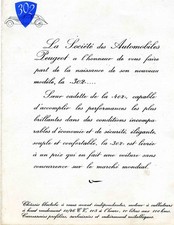 302
La Société des Automobiles
Peugeot a l'honneur de vous faire
part de la naissance de son nouveau
modèle, la .302.....
Sœur cadette de la .402., capable
d'accomplir les performances les plus
brillantes dans des conditions incompa-
rables d'économie et de sécurité, élégante,
souple et confortable, la .302. est livrée
à un prix qui en fait une voiture sans
concurrence sur le marché mondial.
Châssis Unitable à roues avant indépendantes, moteur à culbuteurs
à haut rendement 10/45 C.V., 105 à l'heure, 10 litres aux 100 kms.
Carrosseries profilées, exclusives et entièrement métalliques.